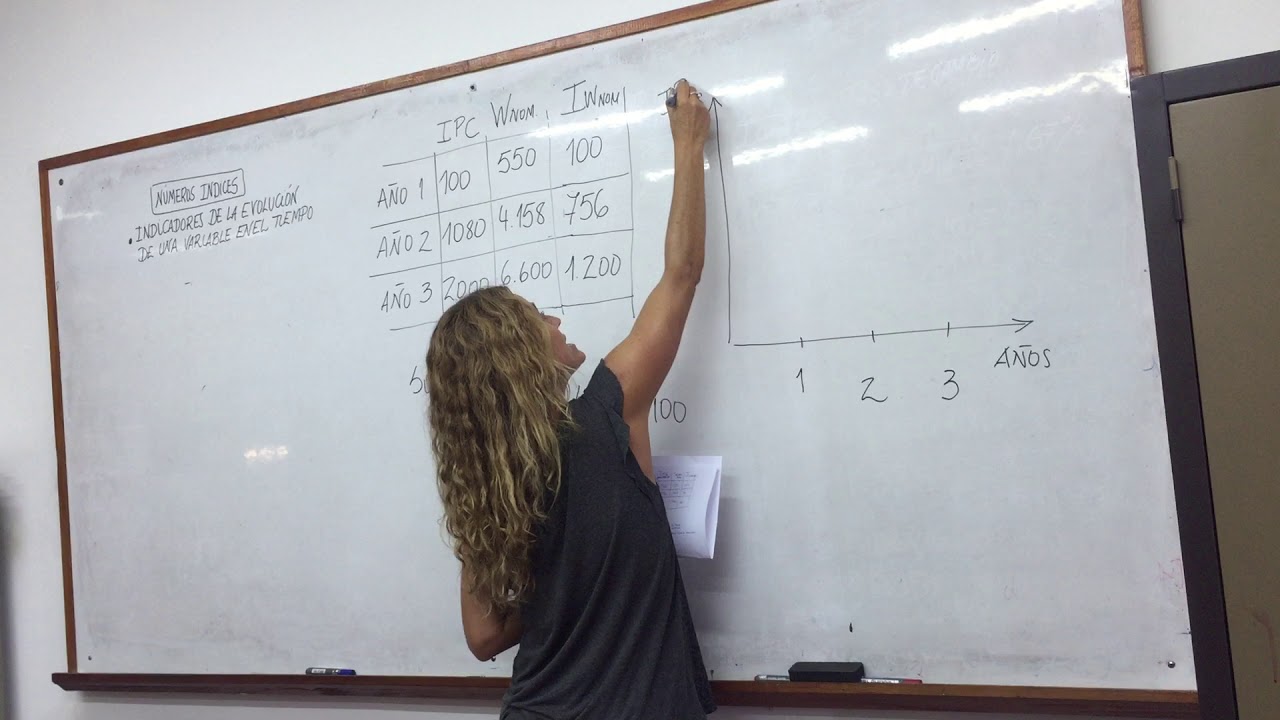 NÚMEROS INDICES
• INDICADORES DE LA EVOLUCIÓN
DE UNA VARIABLE EN EL TIEMPO
IPC WNOM. IWNOM
AÑO 1 100 550 100
AÑO 2 1080 4.158 756
AÑO 3 2000 6.600 1.200
100
1 2 3
AÑOS